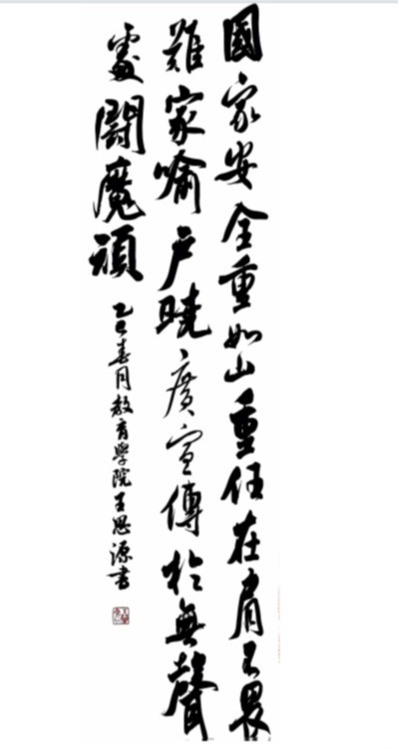 國家安全重如山重任在肩不畏
難家喻戶曉廣宣傳於無聲
處鬪魔頑
乙巳春月教育學院王思源書